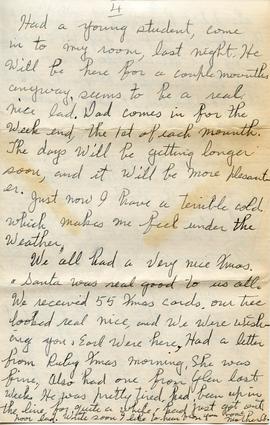 4
Had a young student, come
in to my room, last night. He
will be here for a couple mounths
anyway, seems to be a real
nice lad. Dad comes in for the
week end the 1st of each mounth.
The days will be getting longer
soon, and it will be more pleasant
er.
Just now I have a terrible cold
which makes me feel under the
Weather.
We all had a very nice Xmas.
Santa was real good to us all.
We received 55 Xmas cards, our tree
looked real nice, and we were wish
ing you & Earl were here, Had a letter
from Ruby Xmas morning, She was
fine, also had one from Glen last
week. He was pretty tired, had been up in
the line for quite a while, had just got out
poor lad. Write soon I like to hear from you
Mother